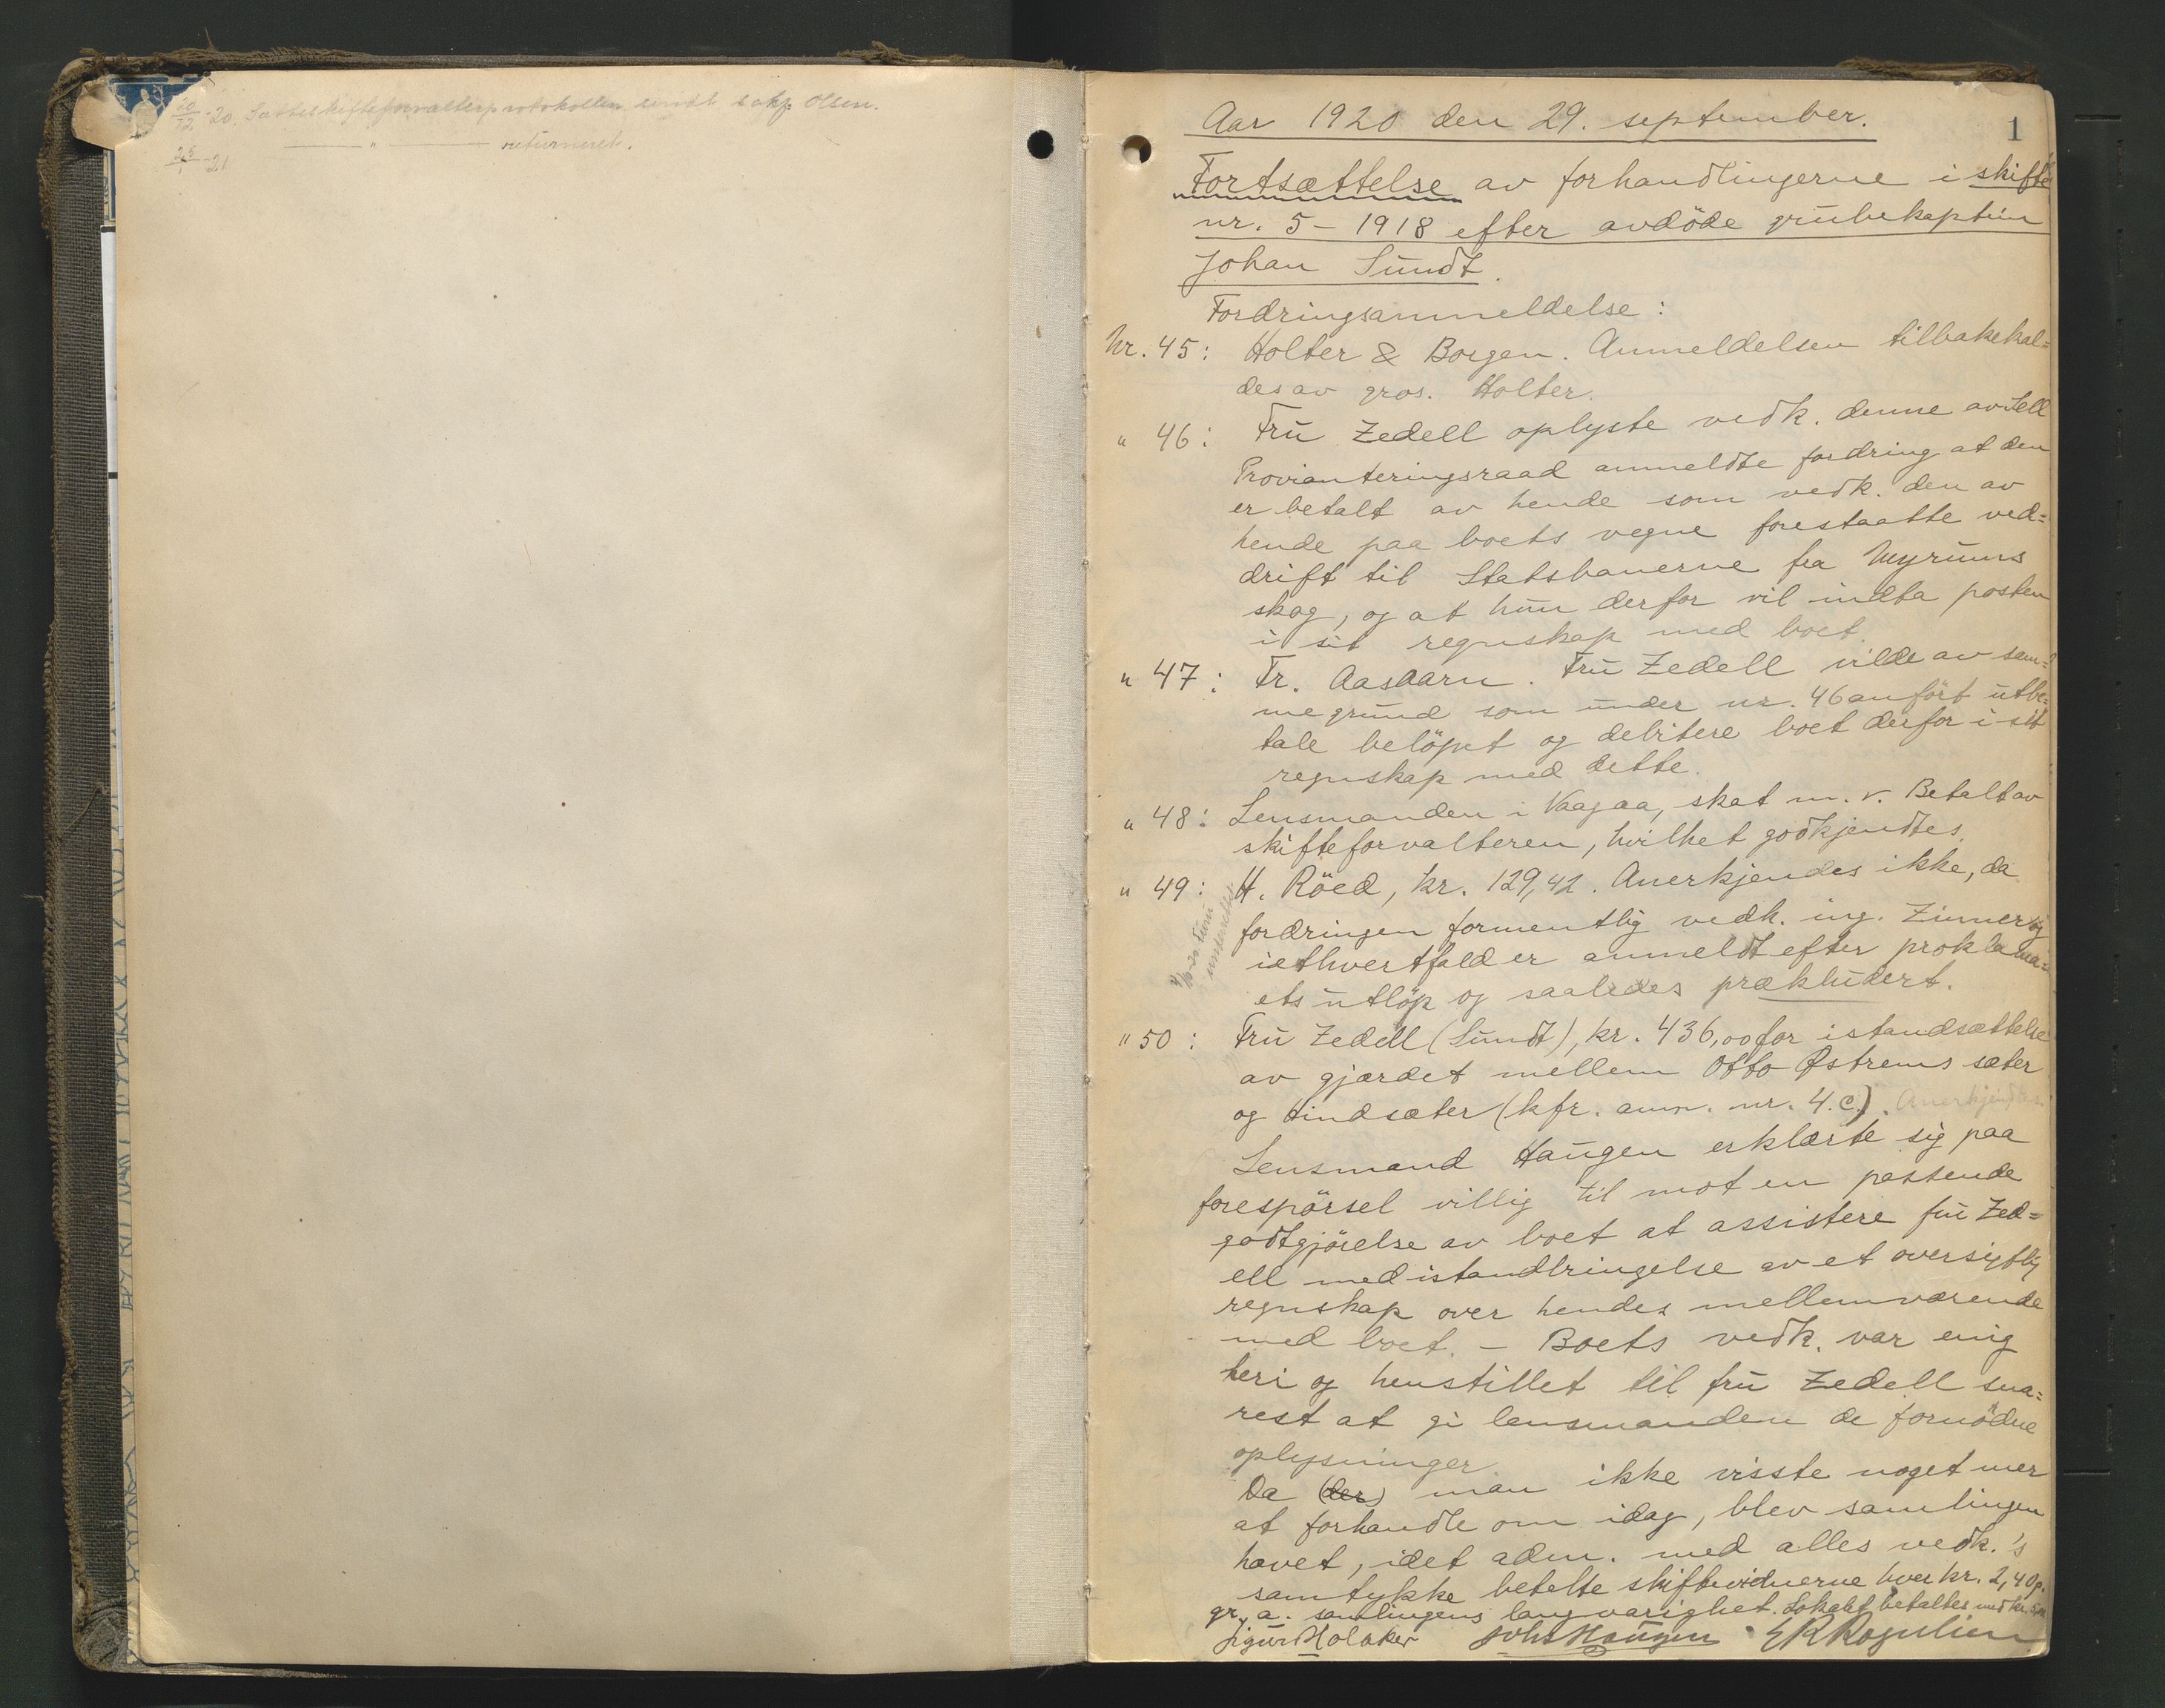 20/12-20. Sætteskifteforvalterprotokollen sendt sakf. Olsen.
25/1-21 — " — returneret.
1
Aar 1920 den 29. september.
Fortsættelse av forhandlingerne i skifte
nr. 5 - 1918 efter avdöde grubekaptein
Johan Sundt.
Fordringsanmeldelse:
Nr. 45: Holter & Borgen. Anmeldelsen tilbakekal=
des av gros. Holter.
" 46: Fru Zedell oplyste vedk. denne av Sell
Provianteringsraad anmeldte fordring at den
er betalt av hende som vedk. den av
hende paa boets vegne forestaatte ved=
drift til Statsbanerne fra Myrums
skog, og at hun derfor vil indta posten
i sit regnskap med boet.
" 47: Fr. Aasaarn. Fru Zedell vilde av sam=
me grund som under nr. 46 anfört utbe=
tale belöpet og debitere boet derfor i sit
regnskap med dette.
" 48: Lensmanden i Vaagaa, skat m. v. Betalt av
skifteforvalteren, hvilket godkjendtes.
" 49: H. Röed, kr. 129,42. Anerkjendes ikke, da
fordringen formentlig vedk. ing. Zimmer og
iethvertfald er anmeldt efter proklama=
ets utlöp og saaledes prækludert.
underrettet
" 50: Fru Zedell (Sundt), kr. 436,00 for istandsættelse
av gjærdet mellem Otto Østrems sæter
og Hindsæter (kfr. anm. nr. 4.c.). Anerkjendtes.
Lensmand Haugen erklærte sig paa
forespörsel villig til mot en passende
godtgjörelse av boet at assistere fru Zed=
ell med istandbringelse av et oversigtlig
regnskap over hendes mellemværende
med boet. - Boets vedk. var enig
heri og henstillet til fru Zedell sna=
rest at gi lensmanden de fornödne
oplysninger.
Da (der) man ikke visste noget mer
at forhandle om idag, blev samlingen
hævet, idet adm. med alles vedk.'s
samtykke betalte skiftevidnerne hver kr. 2,40 p.
gr. a. samlingens langvarighet. Lokalet betaltes med kr.
Sigurd Holaker Johs Haugen E R Rogulien